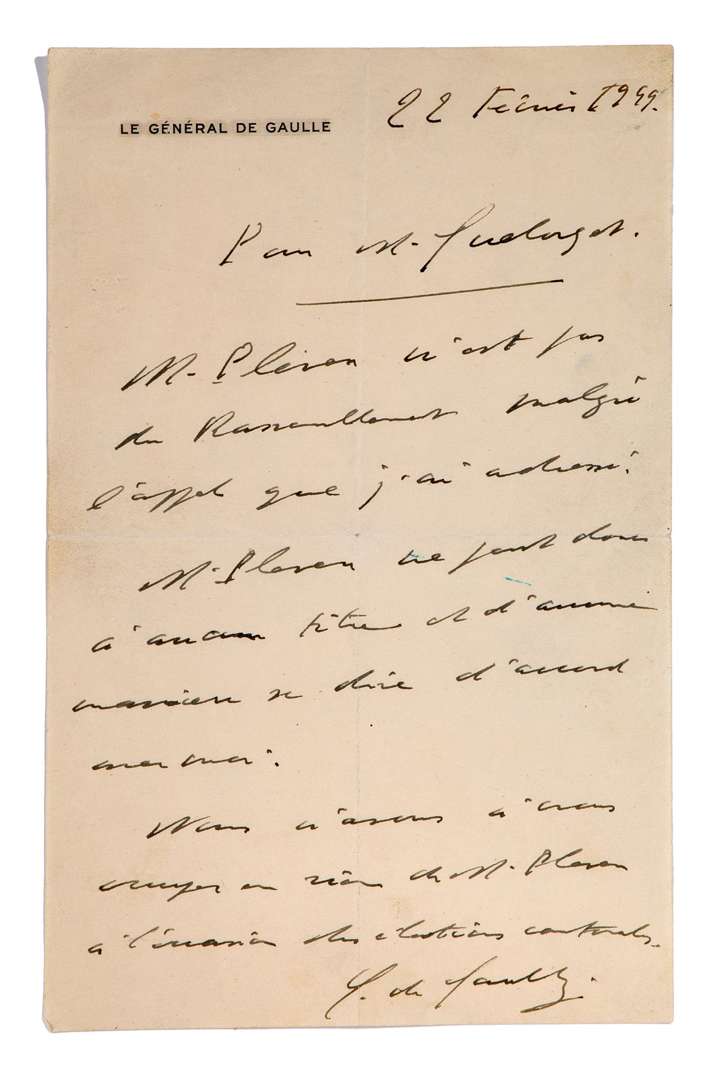 LE GÉNÉRAL DE GAULLE
22 Février 1949.
Pour M. Guelorget.
M. Pleven n'est pas
du Rassemblement malgré
l'appel que j'ai adressé.
M. Pleven ne peut donc
à aucun titre et d'aucune
manière se dire d'accord
avec moi.
Nous n'avons à nous
occuper en rien de M. Pleven
à l'occasion des élections cantonales.
C. de Gaulle.